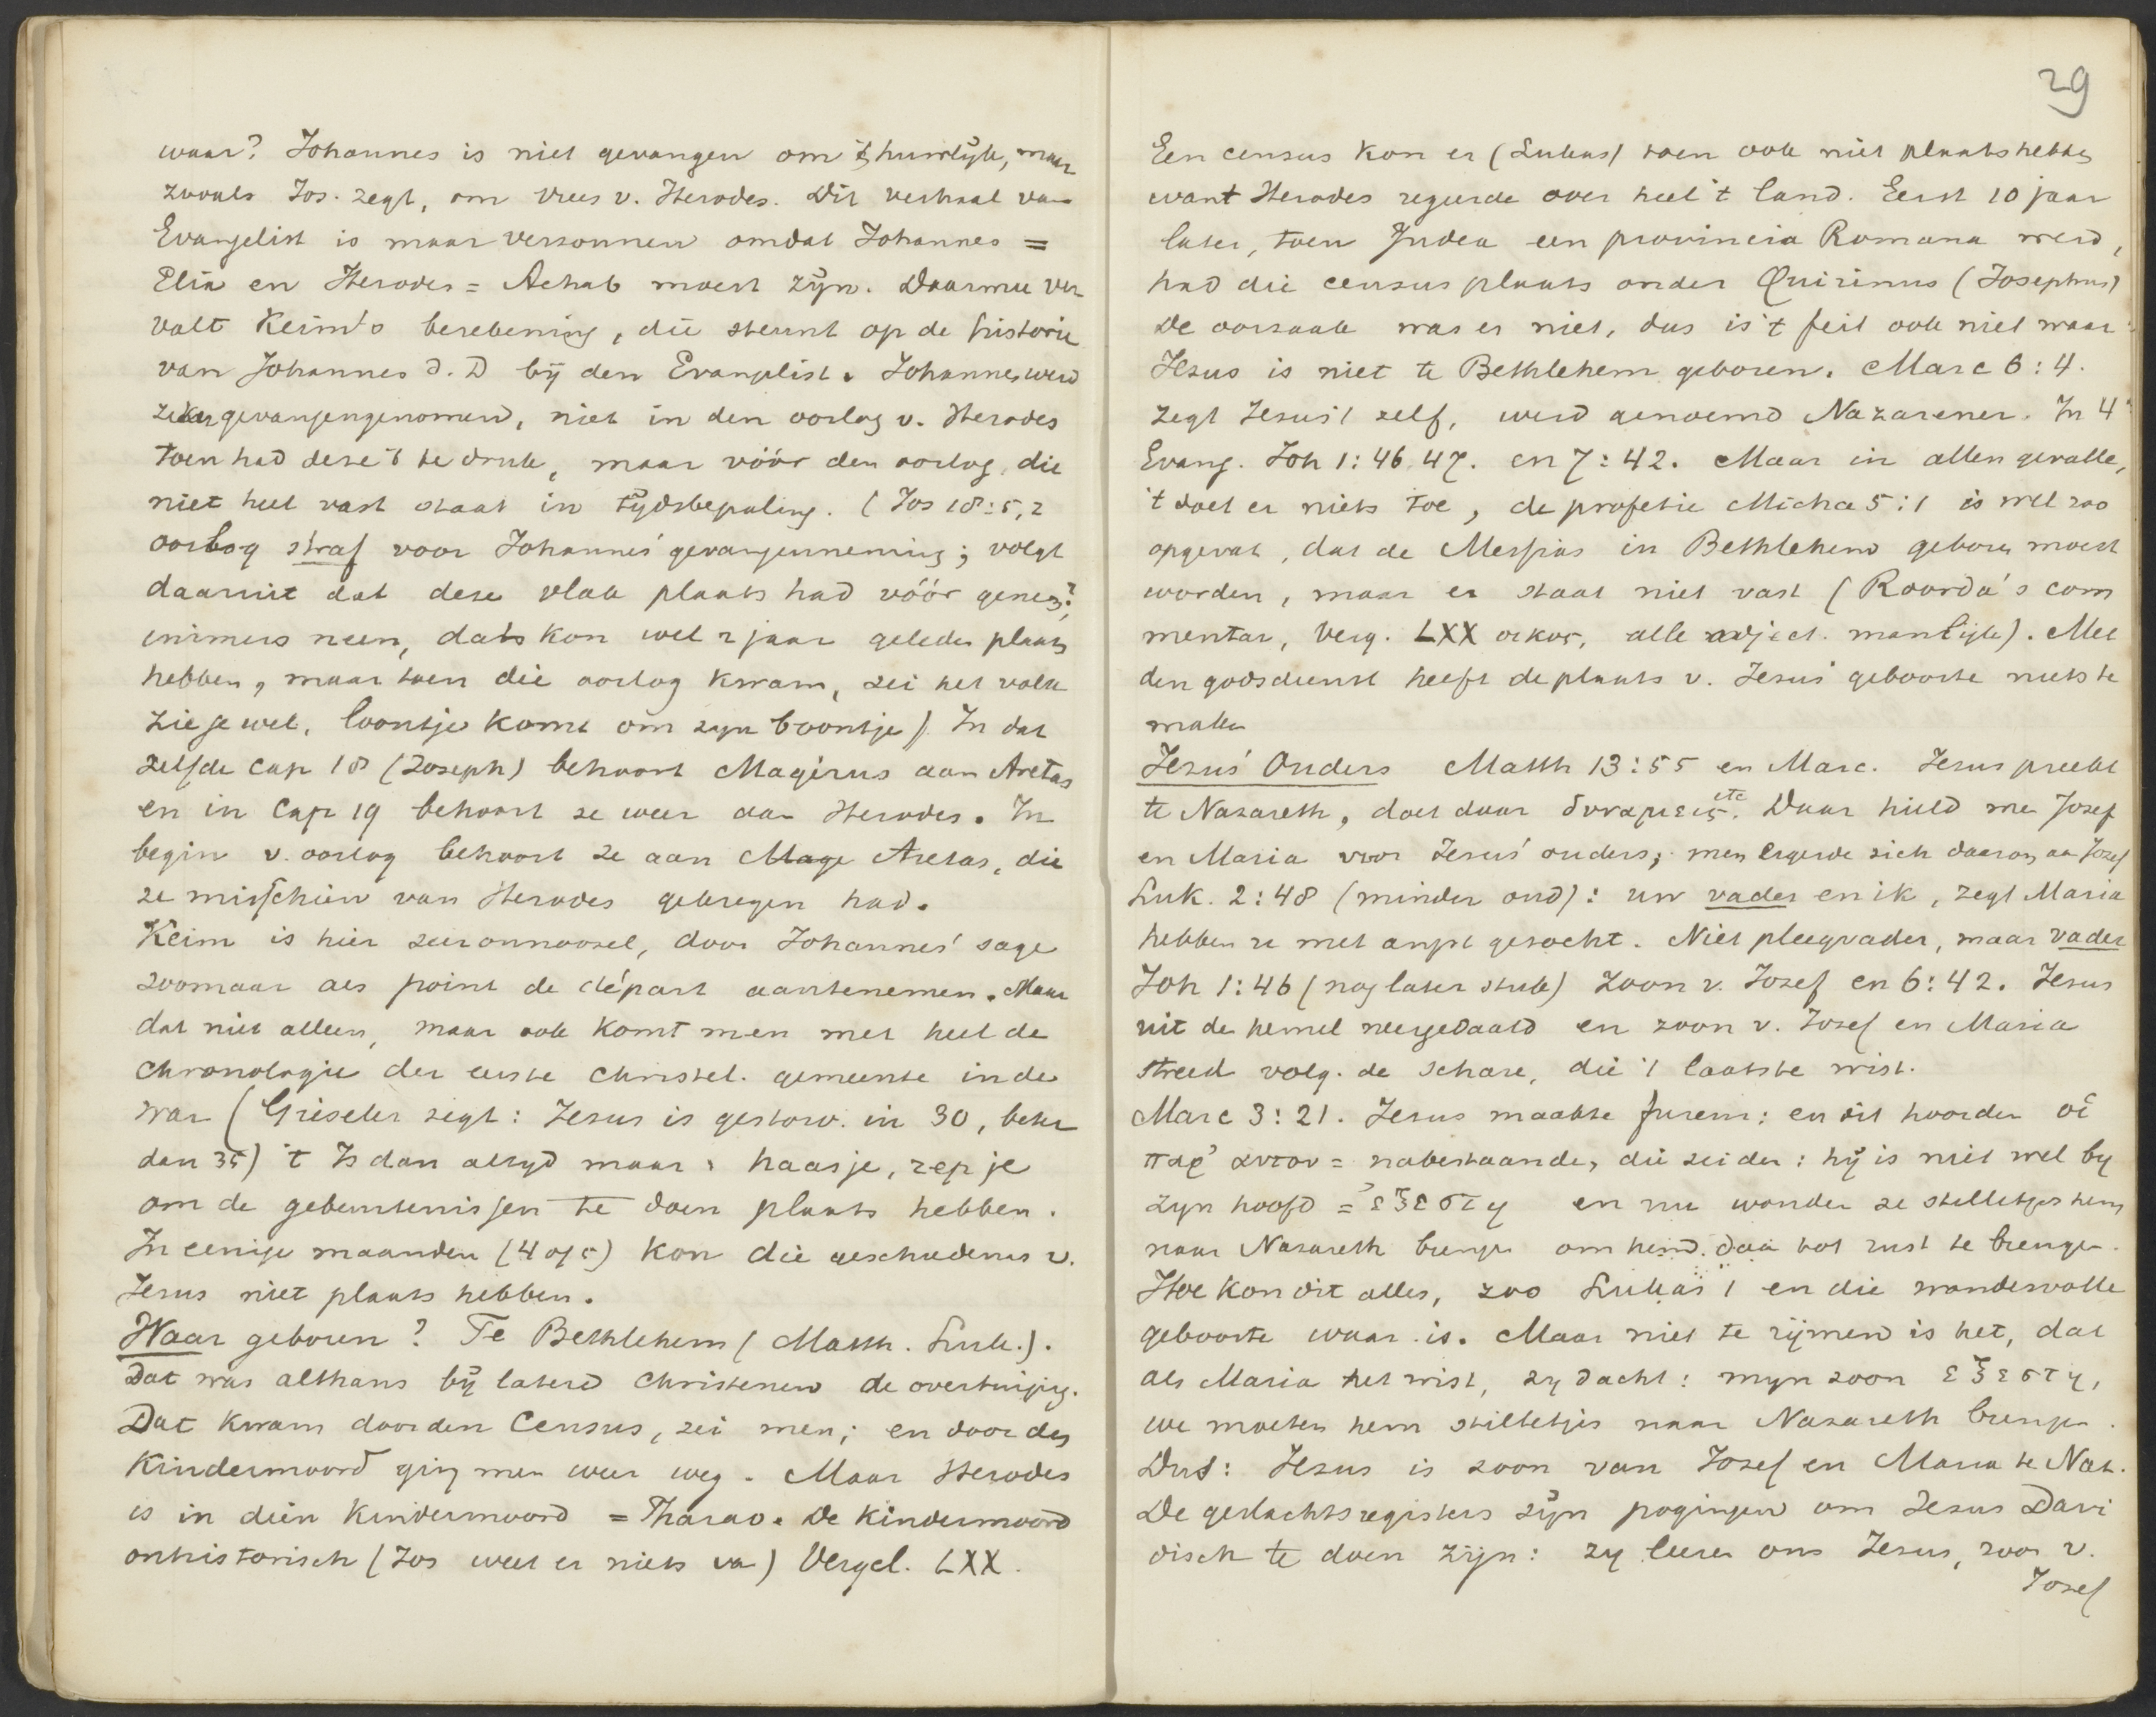 waar? Johannes is niet gevangen om 't huwelijk, maar
zooals Jos. zegt, om vrees v. Herodes. Dit verhaal van
Evangelist is maar verzonnen omdat Johannes =
Elia en Herodes = Achab moest zijn. Daarmee ver
valt Keim's berekening, die steunt op de historie
van Johannes d. D bij den Evangelist. Johannes werd
zeker gevangengenomen, niet in den oorlog v. Herodes
toen had deze 't te druk, maar vóór den oorlog, die
niet heel vast staat in tijdsbepaling. (Jos 18:5,2
oorlog straf voor Johannes' gevangenneming; volgt
daaruit dat deze vlak plaats had vóór gene?
immers neen, dat kon wel 2 jaar geleden plaats
hebben, maar toen die oorlog kwam, zei het volk
zie je wel, loontje komt om zijn boontje) In dat
zelfde cap 18 (Joseph) behoort Magerus aan Aretas
en in Cap 19 behoort ze weer aan Herodes. In
begin v. oorlog behoort ze aan Aretas, die
ze misschien van Herodes gekregen had.
Keim is hier zeer onnoozel, door Johannes' sage
zoomaar als point de départ aantenemen. Maar
dat niet alleen, maar ook komt men met heel de
chronologie der eerste christel. gemeente in de
war (Gieseler zegt: Jesus is gestorv. in 30, beter
dan 35) 't Is dan altijd maar: haasje, rep je
om de gebeurtenissen te doen plaats hebben.
In eenige maanden (4 of 5) kon die geschiedenis v.
Jesus niet plaats hebben.
Waar geboren? Te Bethlehem (Matth. Luk.).
Dat was althans bij latere Christenen de overtuiging.
Dat kwam door den Census, zei men; en door den
Kindermoord ging men weer weg. Maar Herodes
is in dien Kindermoord = Pharao. De Kindermoord
onhistorisch (Jos weet er niets van) Vergel. LXX.
29
Een census kon er (Lukas) toen ook niet plaats hebben
want Herodes regeerde over heel 't land. Eerst 10 jaar
later, toen Judea een provincia Romana werd,
had die census plaats onder Quirinus (Josephus)
De oorzaak was er niet, dus is 't feit ook niet waar:
Jesus is niet te Bethlehem geboren. Marc 6:4.
zegt Jesus 't zelf, werd genoemd Nazarener. In 4e
Evang. Joh 1:46 47. en 7:42. Maar in allen gevalle,
't doet er niets toe, de profetie Micha 5:1 is wel zoo
opgevat, dat de Messias in Bethlehem geboren moest
worden, maar er staat niet vast (Roorda's com
mentar, Verg. LXX οικος, alle adject. manlijk). Met
den godsdienst heeft de plaats v. Jesus' geboorte niets te
maken
Jesus' Ouders Matth 13:55 en Marc. Jesus preekt
te Nazareth, doet daar δυναμεις etc. Daar hield men Jozef
en Maria voor Jesus' ouders; men ergerde zich daarom aan Jozef
Luk. 2:48 (minder oud): uw vader en ik, zegt Maria
hebben u met angst gezocht. Niet pleegvader, maar vader
Joh 1:46 (nog later stuk) zoon v. Jozef en 6:42. Jesus
uit de hemel neergedaald en zoon v. Jozef en Maria
streed volg. de schare, die 't laatste wist.
Marc 3:21. Jesus maakte furem: en dit hoorden οἱ
παρ' αυτου = nabestaanden, die zeiden: hij is niet wel bij
zijn hoofd = ἐξεστη en nu wouden ze stilletjes hem
naar Nazareth brengen om hem daar tot rust te brengen.
Hoe kon dit alles, zoo Lukas 1 en die wondervolle
geboorte waar is. Maar niet te rijmen is het, dat
als Maria het wist, zij dacht: mijn zoon εξεστη,
we moeten hem stilletjes naar Nazareth brengen.
Dus: Jesus is zoon van Jozef en Maria te Naz.
De geslachtsregisters zijn pogingen om Jesus Davi
disch te doen zijn: zij leeren ons Jesus, zoon v.
Jozef